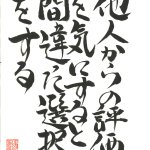 他人からの評価
を気にすると
間違た選択
をする